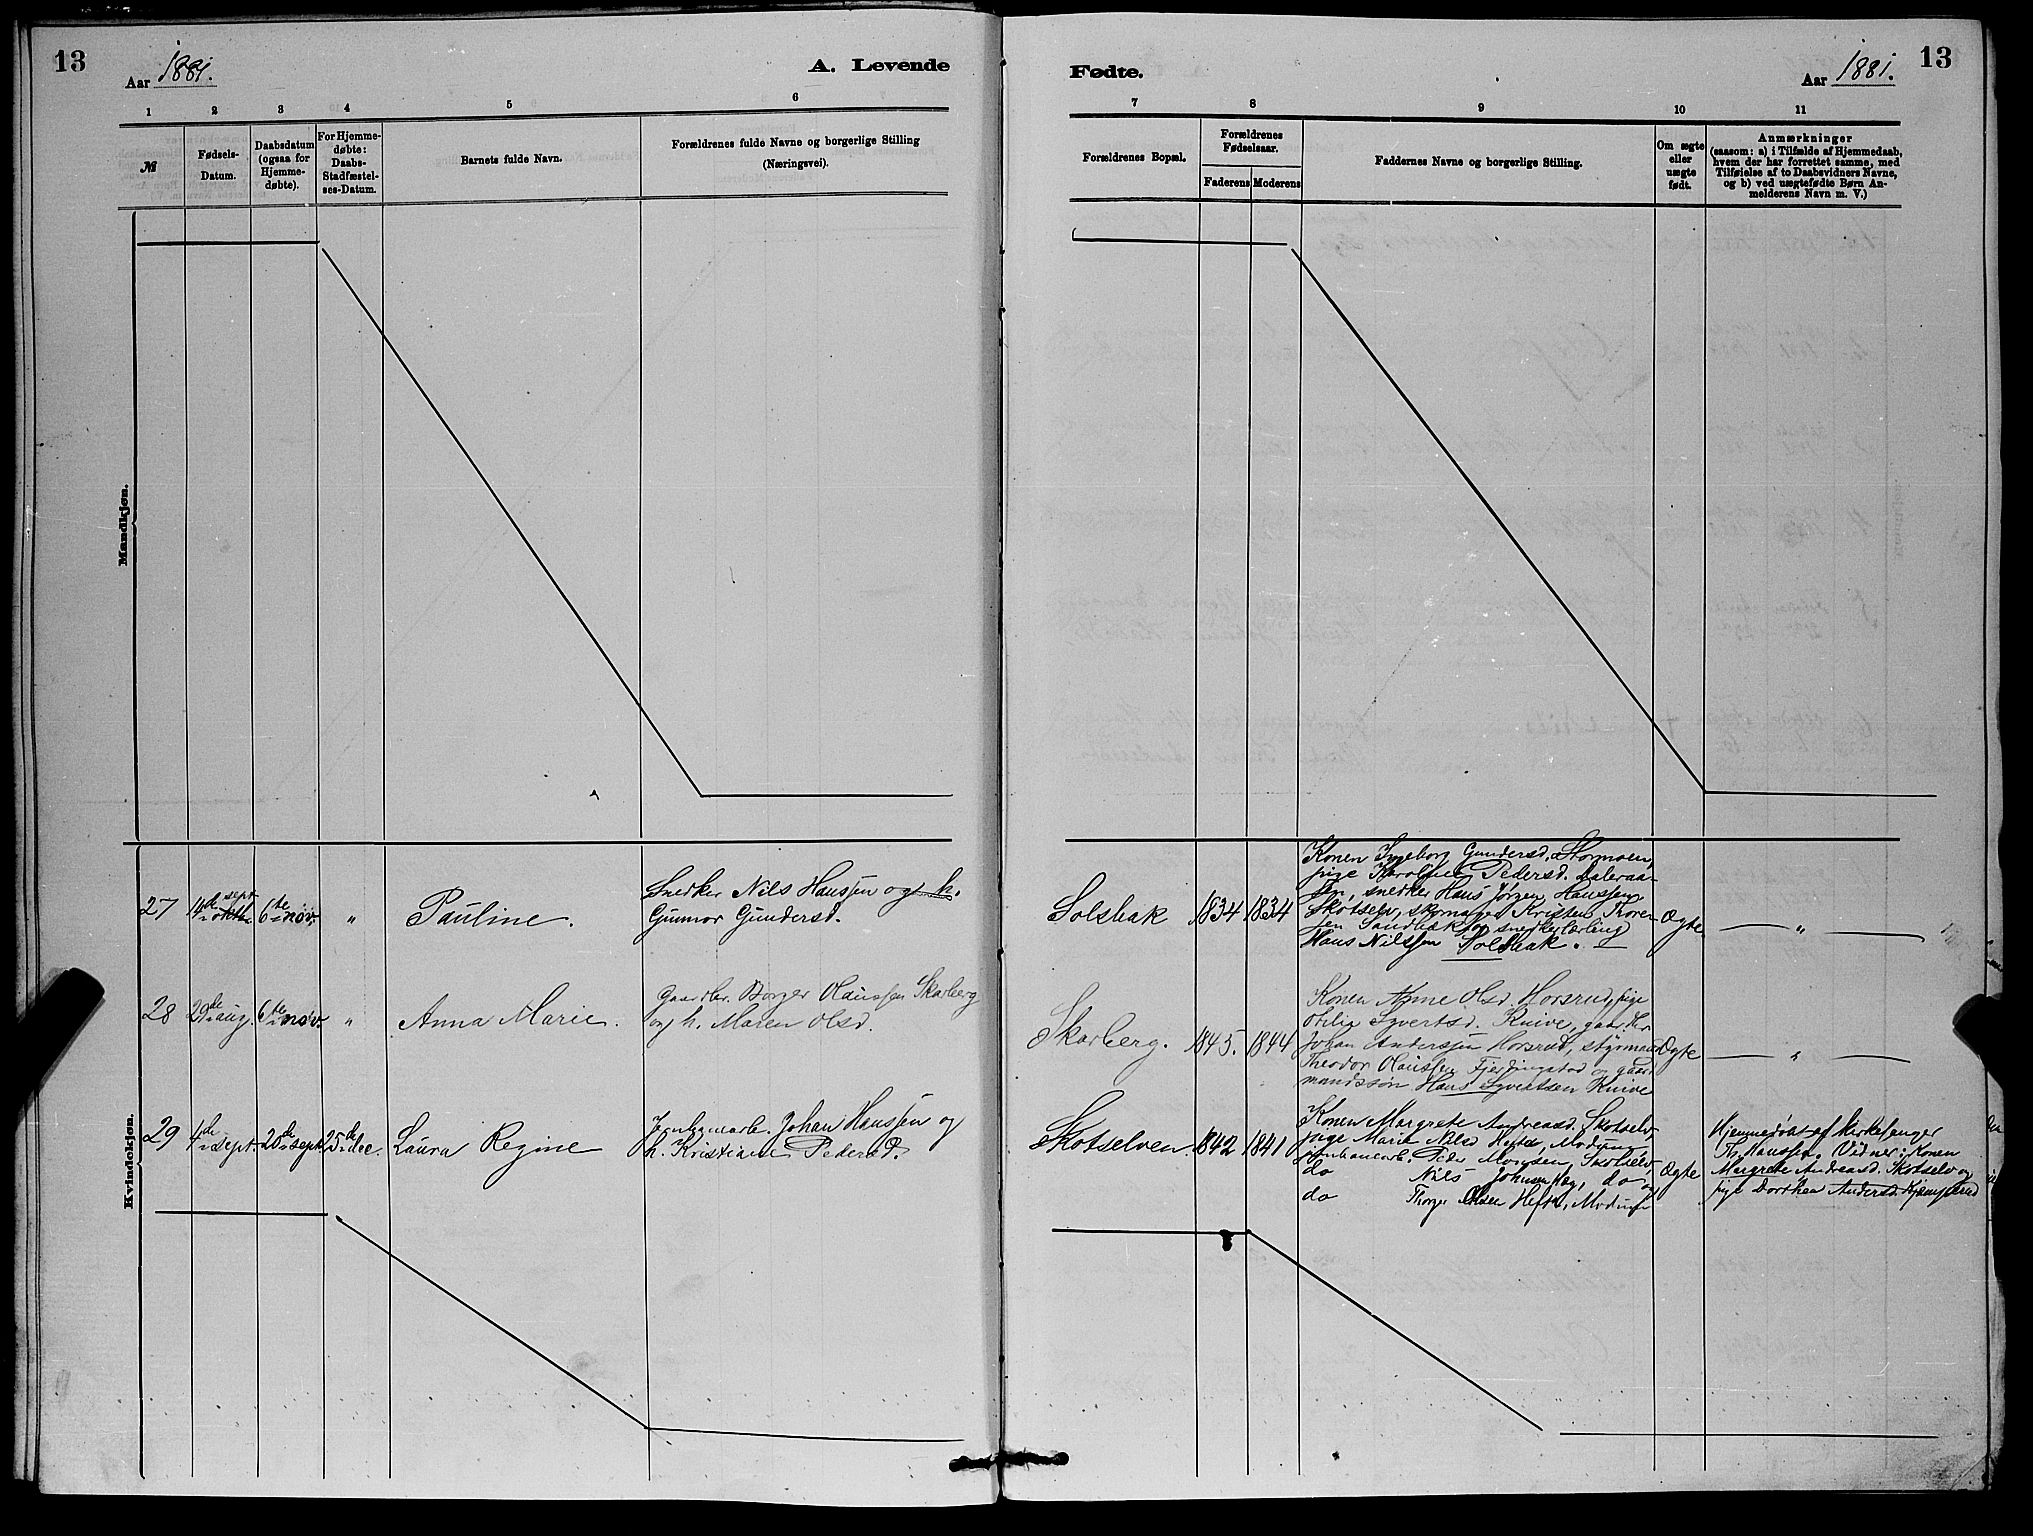 13
Aar 1881.
A. Levende
1 2 3 4 5 6
M
Fødsels-
Datum.
Daabsdatum
(ogsaa for
Hjemme-
døbte).
For Hjemme-
døbte:
Daabs-
Stadfæstel-
ses-Datum.
Barnets fulde Navn.
Forældrenes fulde Navne og borgerlige Stilling
(Næringsvei).
Mandkjøn.
27
14de sept.
i oktbr
6te i nov.
"
Pauline.
Snedker Nils Hanssen og h.
Gunnor Gundersd.
28
29de i aug.
6te i nov.
"
Anna Marie.
Gaardbr. Borger Olaussen Skarberg
og h. Maren Olsd.
Kvindekjøn.
29
4de i sept.
20de i sept.
25de i dec.
Laura Regine
Jernbanearb. Johan Hanssen og
h. Kristiane Pedersd.
Fødte.
Aar 1881.
13
7 8 9 10 11
Forældrenes Bopæl.
Forældrenes
Fødselsaar.
Faderens Moderens
Faddernes Navne og borgerlige Stilling.
Om ægte
eller
uægte
født.
Anmærkninger
(saasom: a) i Tilfælde af Hjemmedaab,
hvem der har forrettet samme, med
Tilføielse af to Daabsvidners Navne,
og b) ved uægtefødte Børn An-
melderens Navn m. V.)
Solsbak
1834
1834
Konen Ingeborg Gundersd. Stormoen,
pige Karoline Pedersd. Daleraa-
sen, snedker Hans Jørgen Hanssen
Skotselv, skomager Kristen Thoren-
sen Sandbak og snedkerlærling
Hans Nilssen Solsbak.
Ægte.
"
Skarberg.
1845.
1844
Konen Anne Olsd. Horsrud, pige
Otilia Syvertsd. Knive, gaardbr.
Johan Anderssen Horsrud, styrmand
Theodor Olaussen Fjerdingstad og gaard-
mandssøn Hans Syvertsen Knive
Ægte
"
Skotselven.
1842
1841
Konen Margrete Andreasd. Skotselv,
pige Marie Nilsd. Hefte, Modum,
jernbanearb. Peder Skotselv
do Nils do og
do Thorger Olsen Hefte, Modum
Ægte
Hjemmedøbt af Kirkesanger
Th. Hanssen. Vidner: Konen
Margrete Andreasd. Skotselv og
pige Dorthea Andersd. Kjemperud